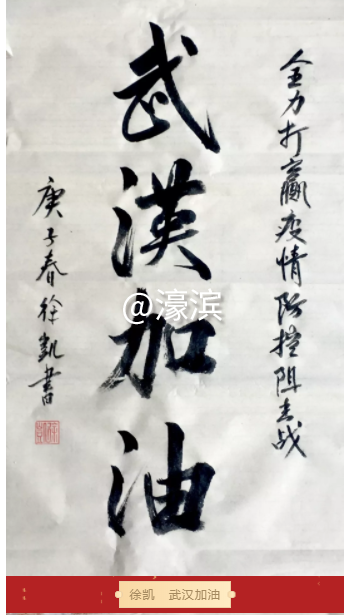 全力打赢疫情防控阻击战
武漢加油
庚子春徐凯書
@濠滨
徐凯 武汉加油